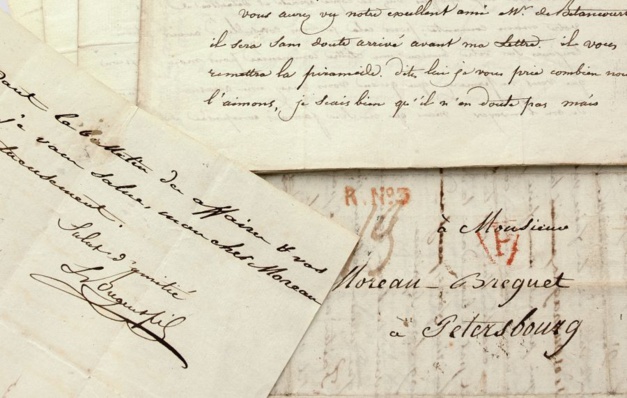 vous aurez vu notre excellent ami Mr. de Betancourt
il sera sans doute arrivé avant ma Lettre. il vous
remettra la piramide. Dites lui je vous prie combien nous
l'aimons, je scais bien qu'il n'en doute pas mais
la bulletin des affaires & vous
je vous salue, mon cher Moreau
Salut d'amitié
R. N°3
19
P
à Monsieur
Moreau - Breguet
à Petersbourg